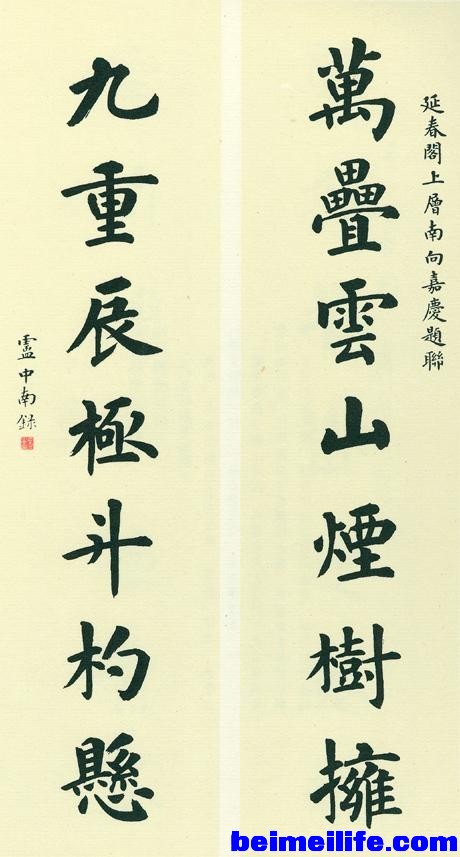 延春閣上層南向嘉慶題聯
萬疊雲山煙樹擁
九重辰極斗杓懸
盧中南錄
beimeilife.com